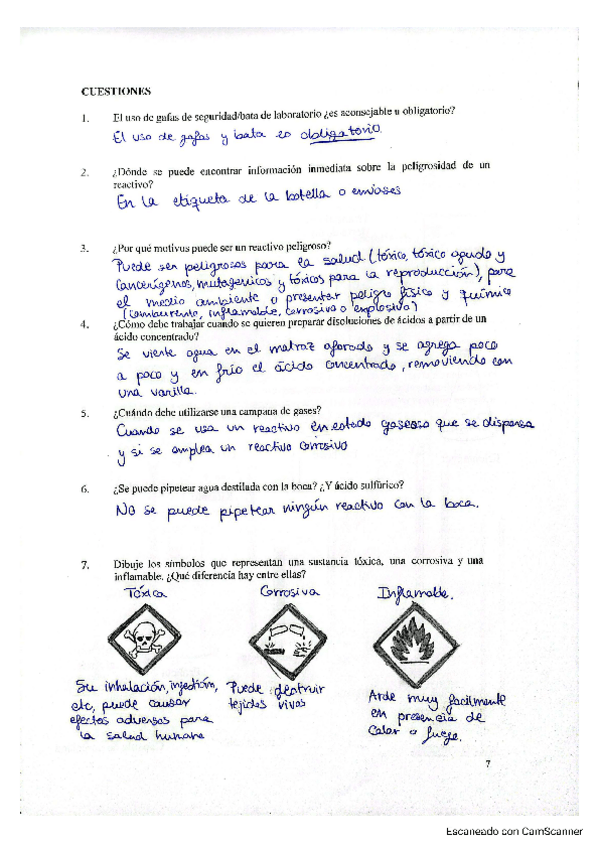 CUESTIONES
1. El uso de gafas de seguridad/bata de laboratorio ¿es aconsejable u obligatorio?
El uso de gafas y bata es obligatorio.
2. ¿Dónde se puede encontrar información inmediata sobre la peligrosidad de un
reactivo?
En la etiqueta de la botella o envases
3. ¿Por qué motivos puede ser un reactivo peligroso?
Puede ser peligrosos para la salud (tóxico, tóxico agudo y
cancerígenos, mutagenicos y tóxicos para la reproducción), para
el medio ambiente o presentar peligro físico y químico
(comburente, inflamable, corrosiva o explosiva)
4. ¿Cómo debe trabajar cuando se quieren preparar disoluciones de ácidos a partir de un
ácido concentrado?
Se vierte agua en el matraz aforado y se agrega poco
a poco y en frío el ácido concentrado, removiendo con
una varilla.
5. ¿Cuándo debe utilizarse una campana de gases?
Cuando se usa un reactivo en estado gaseoso que se dispersa
y si se emplea un reactivo corrosivo
6. ¿Se puede pipetear agua destilada con la boca? ¿Y ácido sulfúrico?
No se puede pipetear ningún reactivo con la boca.
7. Dibuje los símbolos que representan una sustancia tóxica, una corrosiva y una
inflamable. ¿Qué diferencia hay entre ellas?
Tóxica Corrosiva Inflamable.
Su inhalación, ingestión,
etc, puede causar
efectos adversos para
la salud humana
Puede destruir
tejidos vivos
Arde muy facilmente
en presencia de
calor o fuego.
7
Escaneado con CamScanner